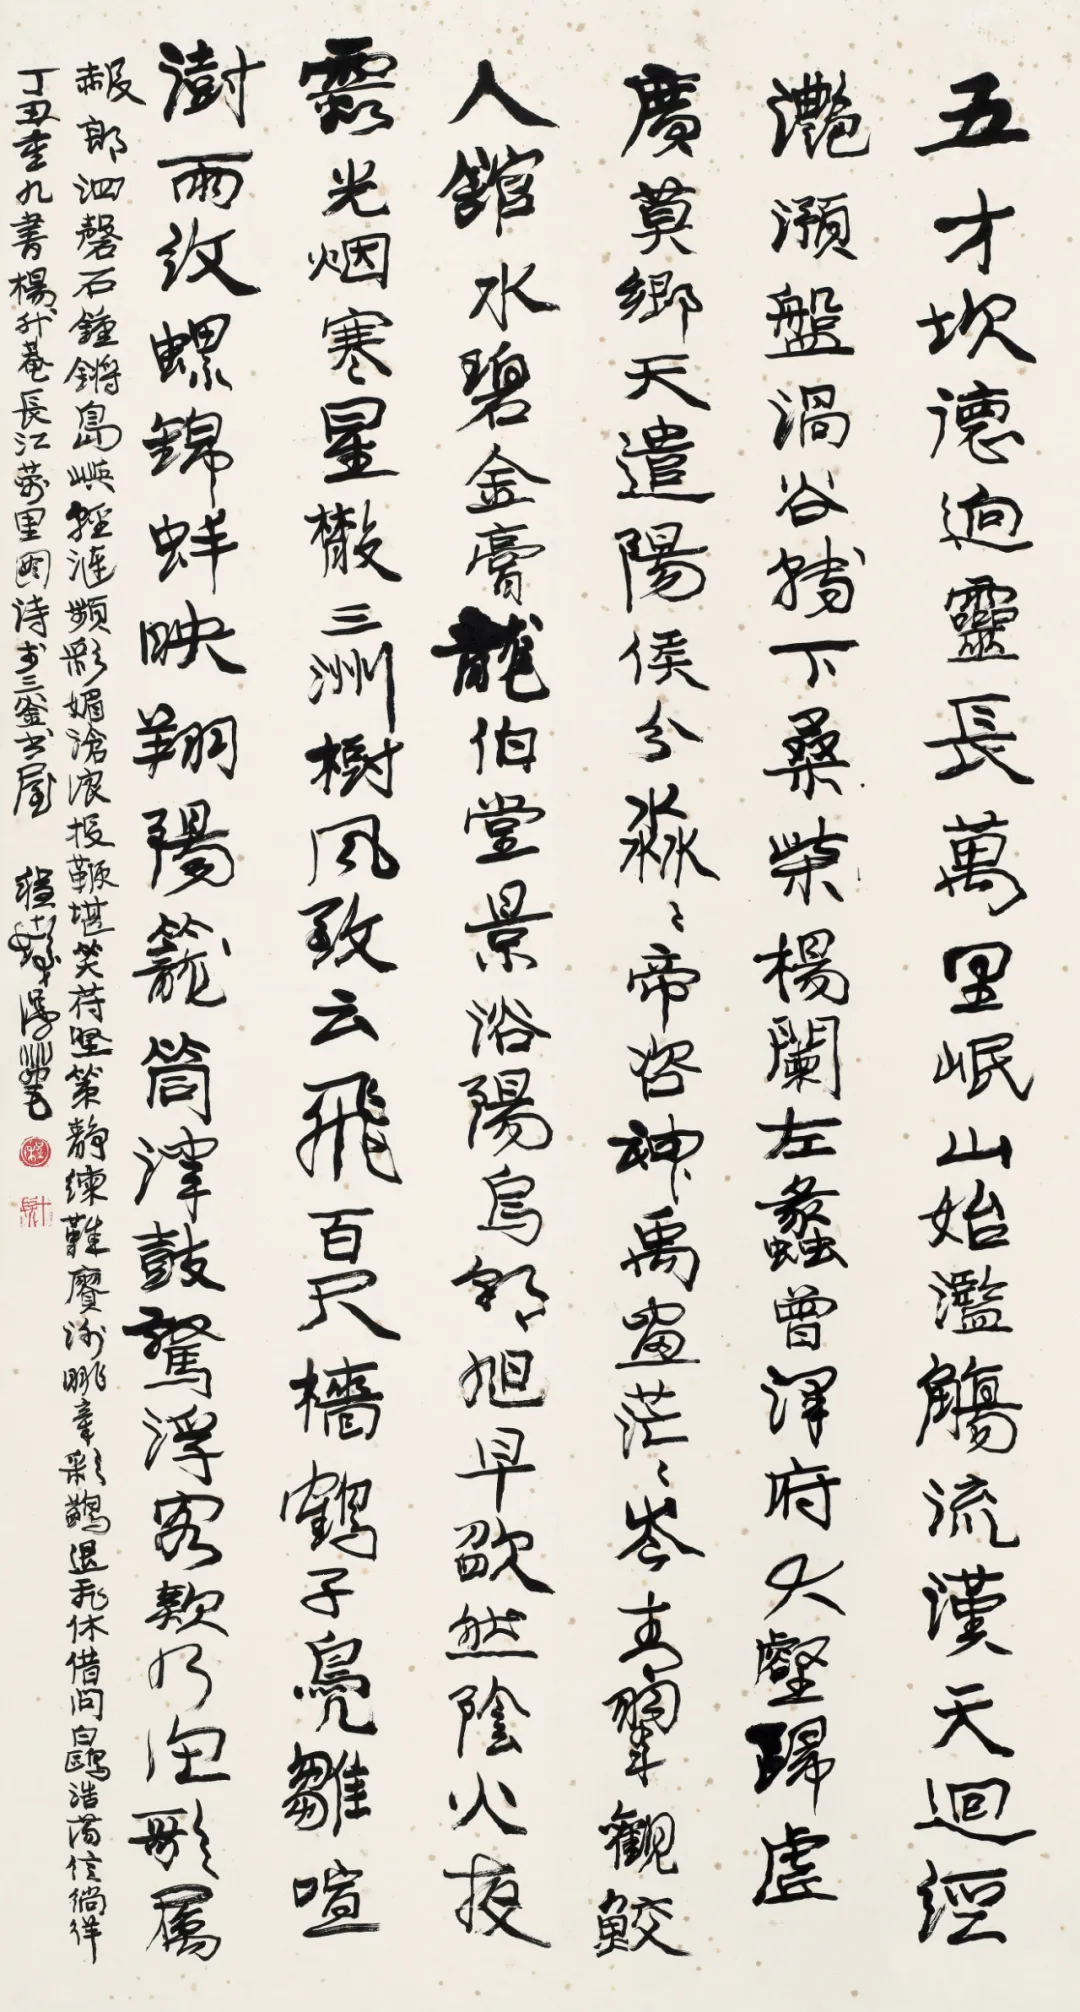 五才坎德迥靈長萬里岷山始濫觴流漢天迴經
灔澦盤渦谷轉下桑柴楊闌左蠡曾澤府大壑歸虛
廣莫鄉天遣陽侯分淼淼帝咨神禹畫茫茫岑青翠觀鮫
人館水碧金膏龍伯堂景浴陽烏朝旭早歘然陰火夜
靈光烟寒星散三洲樹風致云飛百尺檣鶴子鳧雛喧
澍雨紋螺錦蚌映翔陽籠筒津鼓驚浮客欸乃漁歌屬
赧郎泗磬石鐘鏘島嶼輕漣蘋彩媚滄浪投鞭堪笑苻堅策靜練難賡謝朓章彩鷁退飛休借問白鷗浩蕩信徜徉
丁丑重九書楊升菴長江萬里圖詩於三釜书屋